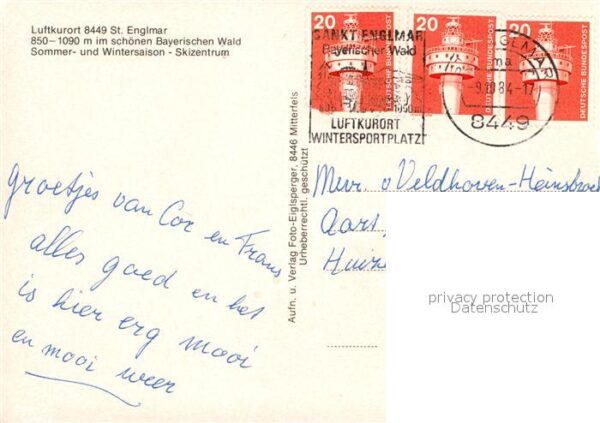 Luftkurort 8449 St. Englmar
850–1090 m im schönen Bayerischen Wald
Sommer- und Wintersaison - Skizentrum
20 20 20
DEUTSCHE BUNDESPOST
DEUTSCHE BUNDESPOST
DEUTSCHE BUNDESPOST
SANKT ENGLMAR
Bayerischer Wald
LUFTKURORT
WINTERSPORTPLATZ
GLMAR
ma
84-17
8449
Aufn. u. Verlag Foto-Eiglsperger, 8446 Mitterfels
Urheberrechtl. geschützt
Groetjes van Cor en Frans
alles goed en het
is hier erg mooi
en mooi weer
Mevr. v Veldhoven-Heinsbroek
Aart
Huize
privacy protection
Datenschutz